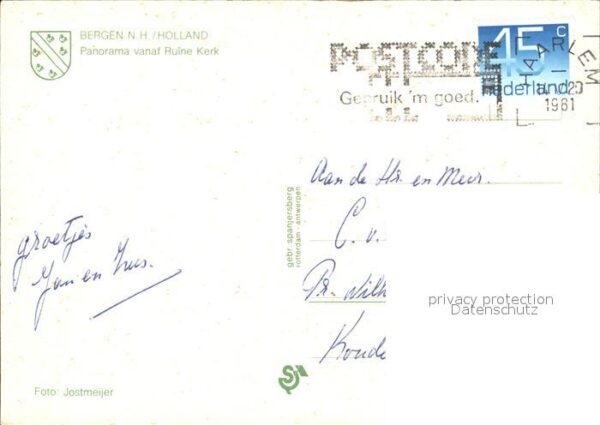 BERGEN N.H. /HOLLAND
Panorama vanaf Ruïne Kerk
POSTCODE
Gebruik 'm goed.
45 c
nederland
HAARLEM
1981
groetjes
Jan en Trus.
Aan de Hr. en Mevr.
C. v.
Pr. Wilh
Koude
gebr. spanjersberg
rotterdam - antwerpen
privacy protection
Datenschutz
Foto: Jostmeijer